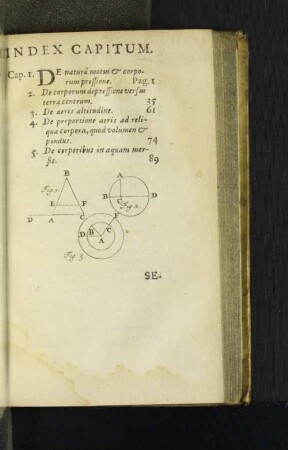 INDEX CAPITUM.
Cap. 1. DE naturâ motus & corpo-
rum pressione. Pag. 1
2. De corporum depressione versus
terræ centrum. 35
3. De aeris altitudine. 61
4. De proportione aeris ad reli-
qua corpora, quod volumen &
pondus. 74
5. De corporibus in aquam mer-
sis. 89
B
A
Fig. 1
B C D
E F
Fig. 2
D A C F
D B C
A
Fig. 3
SE-